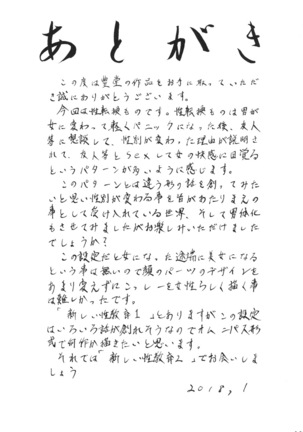 あとがき
この度は豊堂の作品をお手に取っていただ
き誠にありがとうございます。
今回は性転換ものです。性転換ものは男が
女に変わって軽くパニックになった後、友人
等に相談して、性別が変わった理由が説明さ
れて、友人等とsexして女の快感に目覚る
というパターンが多いように感じます。
このパターンとは違うお話を創ってみた
いと思い性別が変わる事を皆があたりまえの
事として受け入れている世界、そして男体化
もさせてみましたがお楽しみいただけました
でしょうか?
この設定だと女になった途端に美女になる
という事は無いので顔のパーツのデザインを
あまり変えずにこっしーを女性らしく描く事
は難しかったです。
「新しい性教育1」とありますがこの設定
はいろいろ話が創れそうなのでオムニバス形
式で何作か描きたいと思います。
それでは「新しい性教育2」でお会いしま
しょう
2018,1